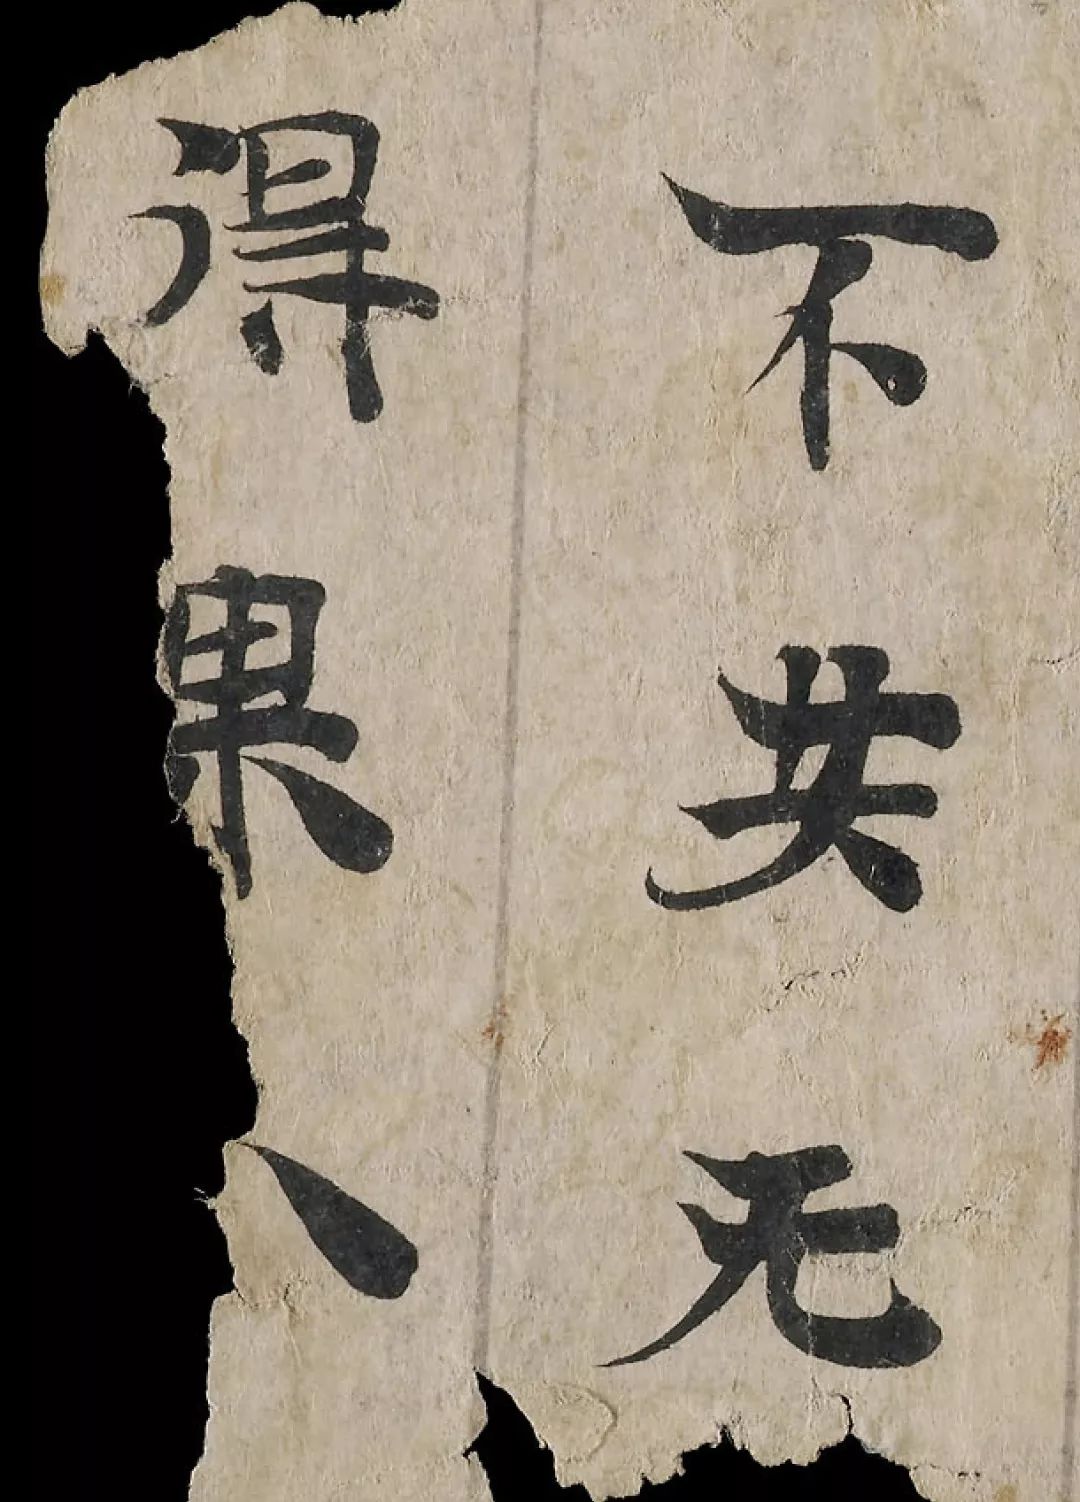 不共无
得果